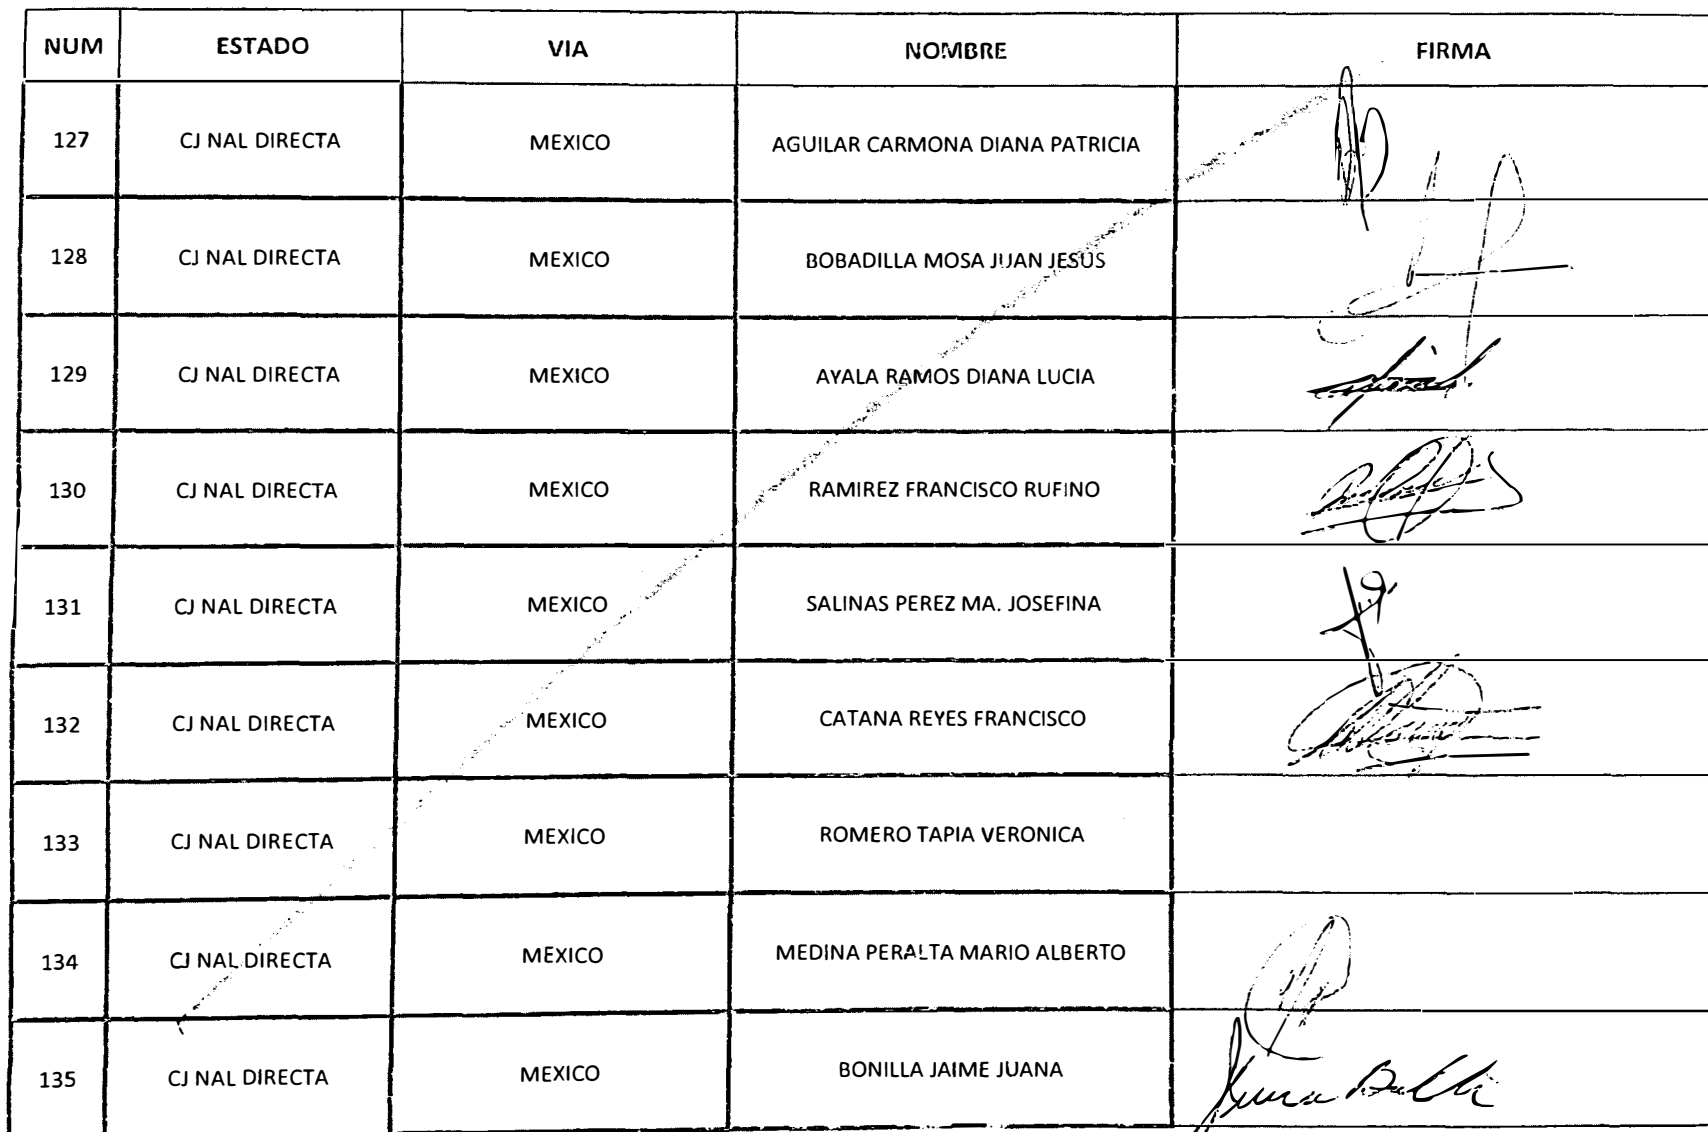 NUM ESTADO VIA NOMBRE FIRMA
127 CJ NAL DIRECTA MEXICO AGUILAR CARMONA DIANA PATRICIA
128 CJ NAL DIRECTA MEXICO BOBADILLA MOSA JUAN JESUS
129 CJ NAL DIRECTA MEXICO AYALA RAMOS DIANA LUCIA
130 CJ NAL DIRECTA MEXICO RAMIREZ FRANCISCO RUFINO
131 CJ NAL DIRECTA MEXICO SALINAS PEREZ MA. JOSEFINA
132 CJ NAL DIRECTA MEXICO CATANA REYES FRANCISCO
133 CJ NAL DIRECTA MEXICO ROMERO TAPIA VERONICA
134 CJ NAL DIRECTA MEXICO MEDINA PERALTA MARIO ALBERTO
135 CJ NAL DIRECTA MEXICO BONILLA JAIME JUANA